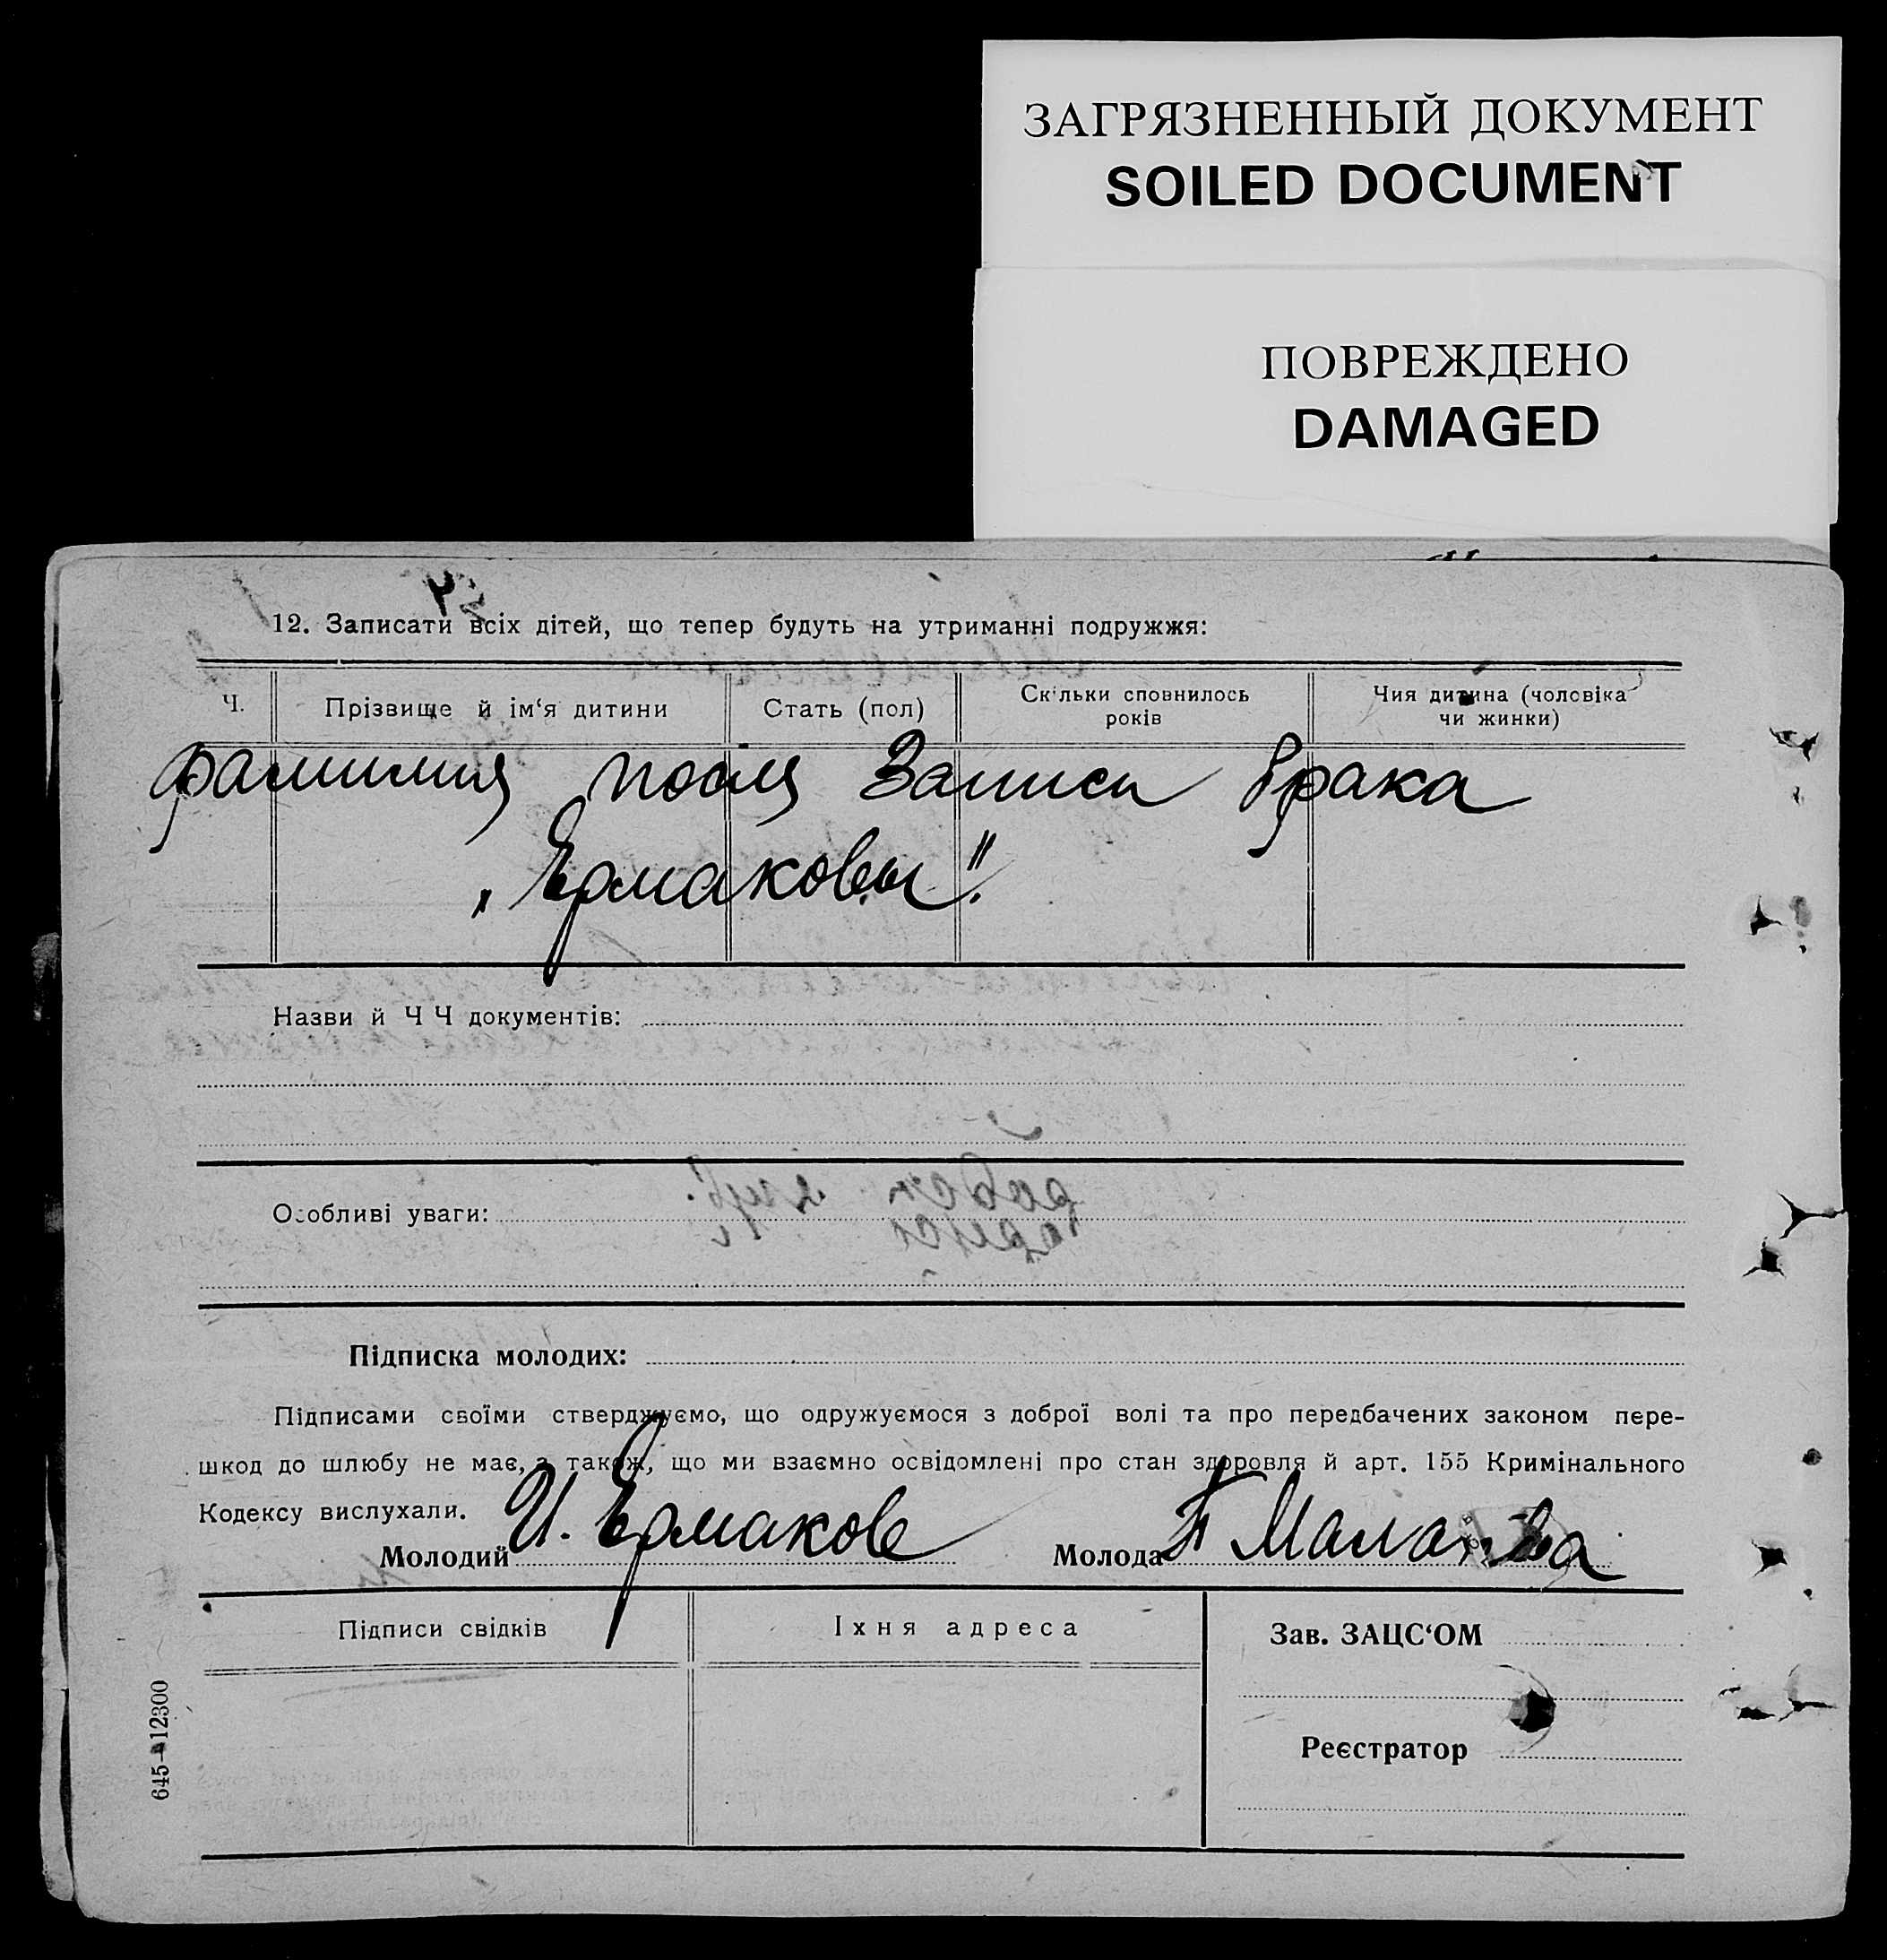 ЗАГРЯЗНЕННЫЙ ДОКУМЕНТ
SOILED DOCUMENT
ПОВРЕЖДЕНО
DAMAGED
12. Записати всіх дітей, що тепер будуть на утриманні подружжя:
Ч. Прізвище й ім‘я дитини Стать (пол) Скільки сповнилось років Чия дитина (чоловіка чи жинки)
фамилия после Записи брака
„Ермаковы".
Назви й Ч Ч документів:
Особливі уваги:
Підписка молодих:
Підписами своїми стверджуємо, що одружуємося з доброї волі та про передбачених законом пере-
шкод до шлюбу не має, а також, що ми взаємно освідомлені про стан здоровля й арт. 155 Кримінального
Кодексу вислухали.
Молодий И. Ермаков Молода
Підписи свідків Їхня адреса Зав. ЗАЦС‘ОМ
Реєстратор
645—12300